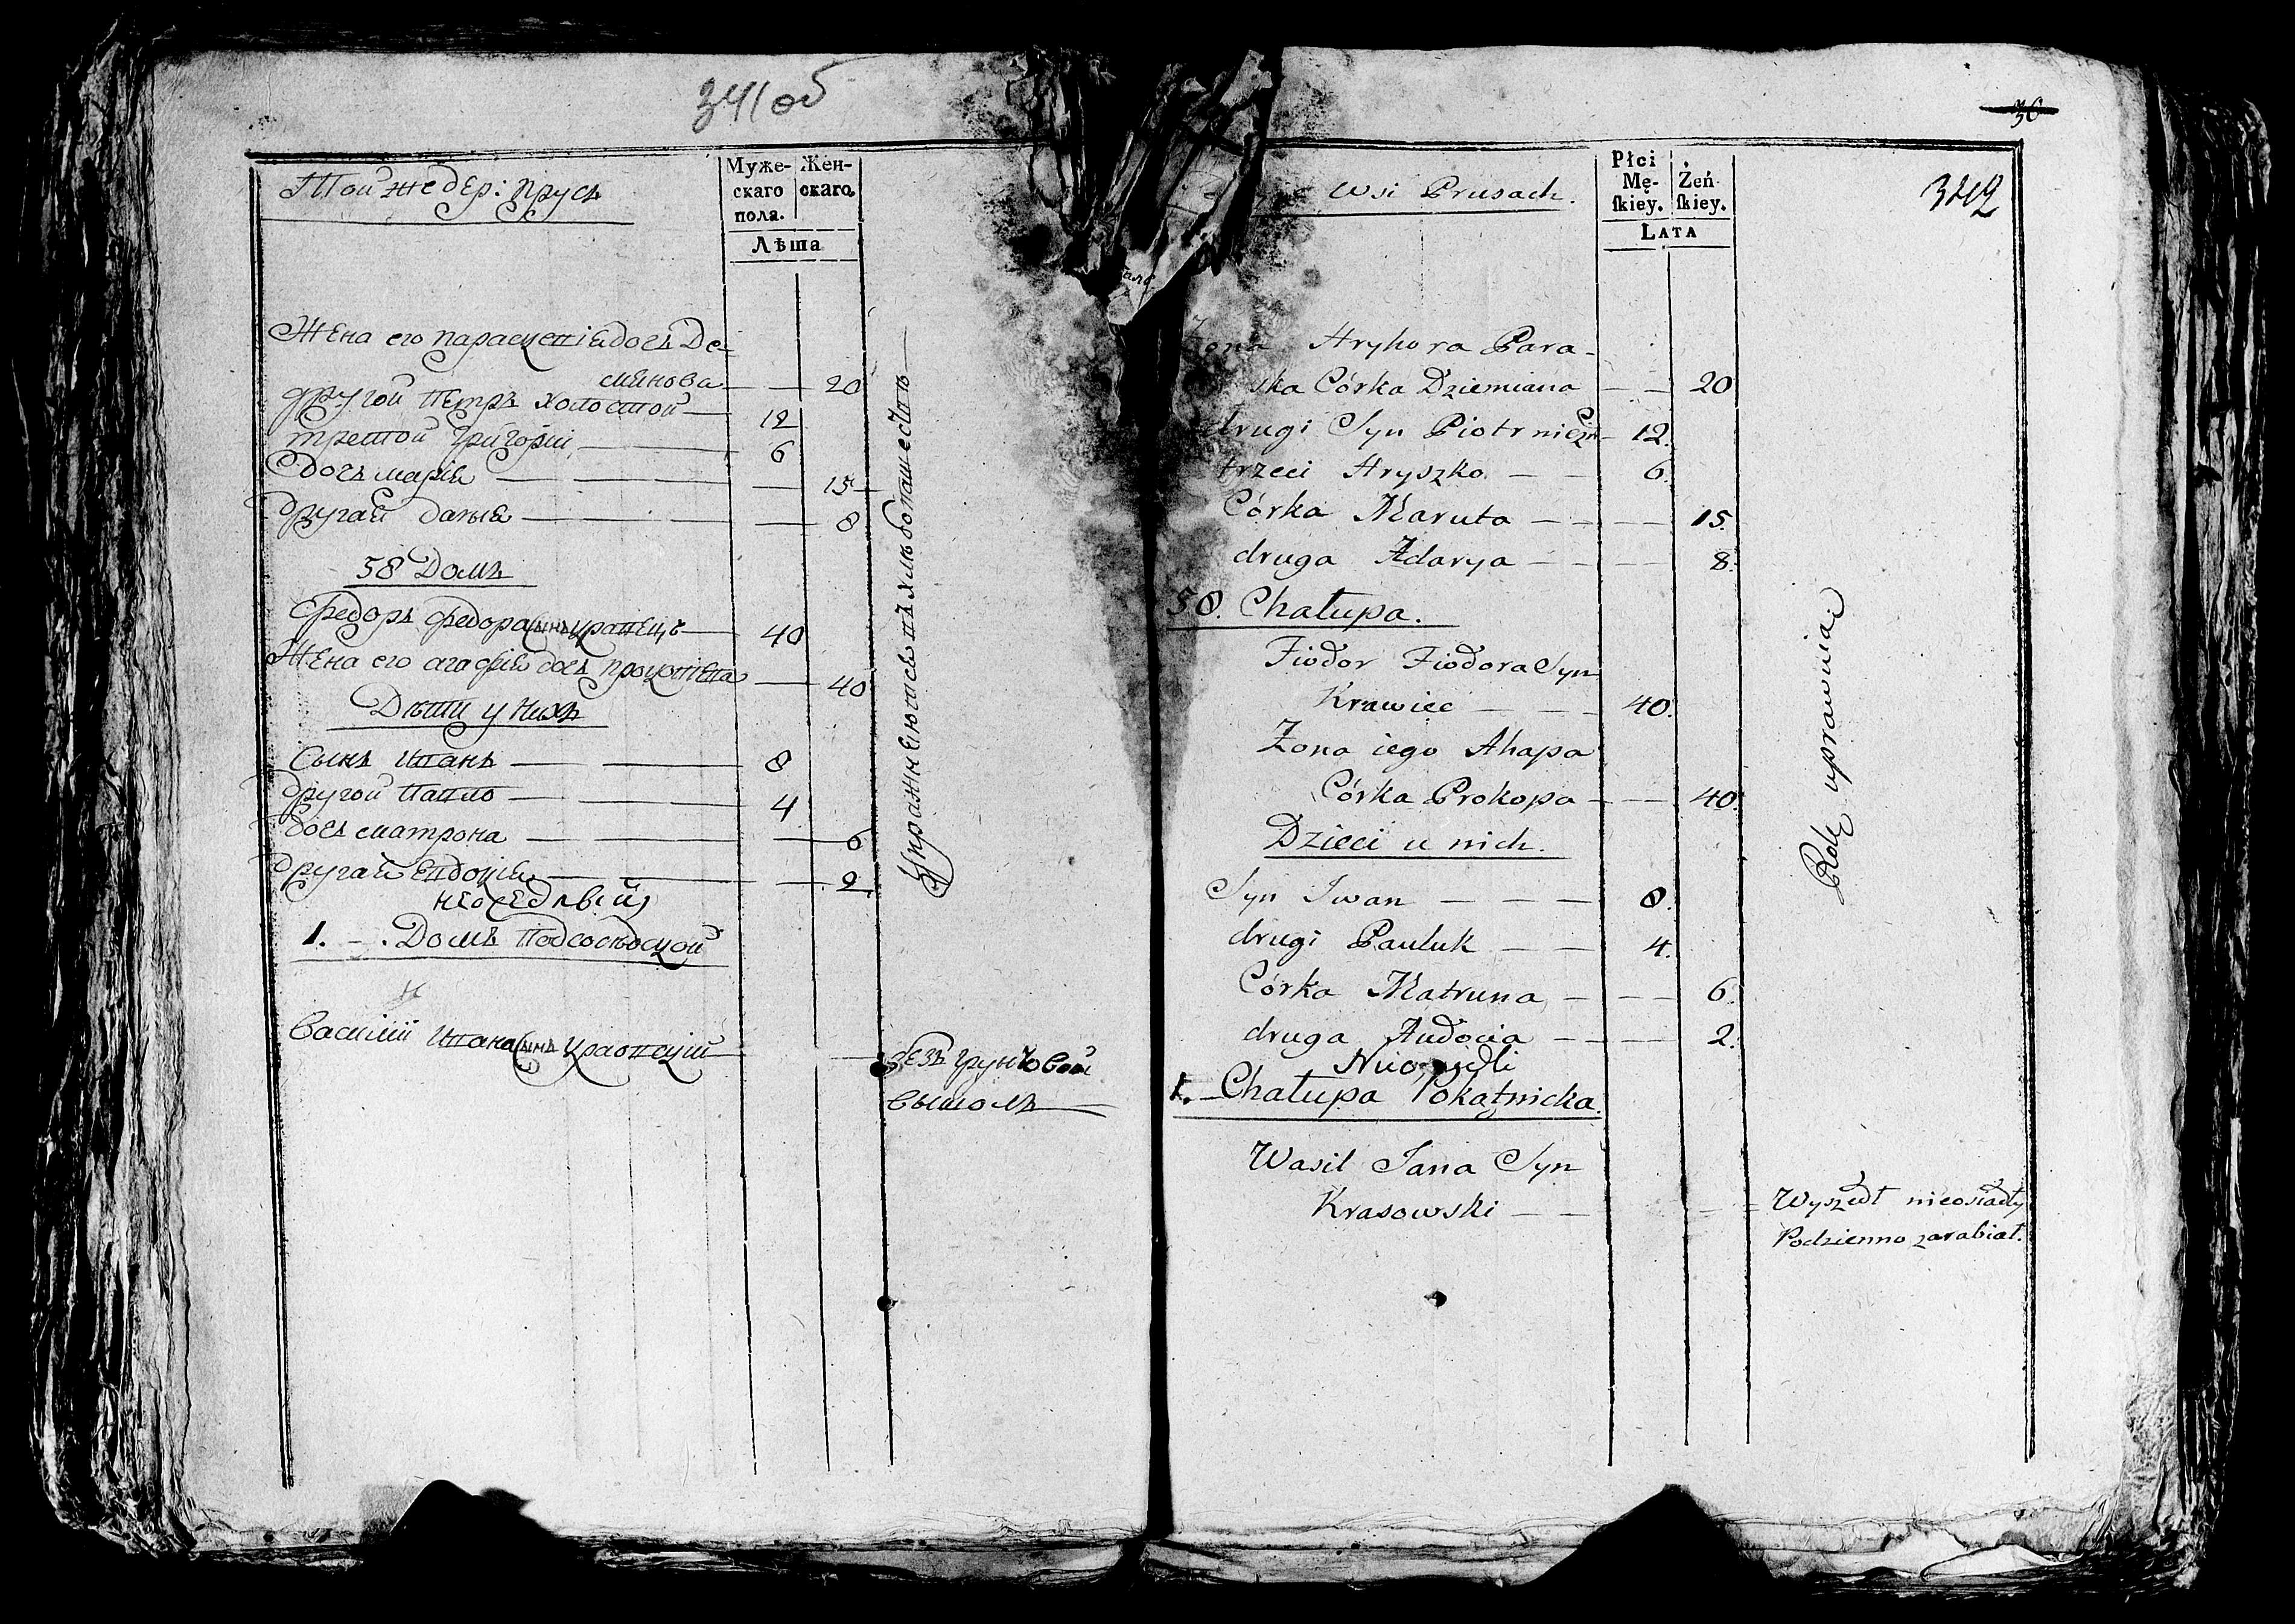 341 об
Той же дер: Прусъ
Муже-
скаго
пола.
Жен-
скаго.
Лѣта
Жена его Параскевія дочь Де-
мянова — — 20
другой Петръ холостой — 12
третой Григорій — 6
дочь Марія — — 15
другая Дарья — — 8
58 Домъ
Федоръ Федора сынъ Кравецъ — 40
Жена его Агафія дочь Прокопева — 40
Дѣти у нихъ
Сынъ Иванъ — — 8
другой Павло — — 4
дочь Матрона — — 6
другая Евдокія — — 2
неоседлый
1. — Домъ Подсоседской
Василій Ивана сынъ Красовскій —
Упражняются въ хлѣбопашествѣ
безъ грунтовой
вышолъ
30
342
Wsi Prusach.
Płci
Mę-
skiey.
Żeń
skiey.
LATA
Żona Hryhora Para-
ska Córka Dziemiana — — 20
drugi Syn Piotr nieżo — 12.
trzeci Hryszko — — 6.
Córka Maruta — — 15.
druga Adarya — — 8.
58. Chałupa.
Fiodor Fiodora Syn
Krawiec — — 40.
Żona iego Ahapa
Córka Prokopa — — 40.
Dzieci u nich.
Syn Iwan — — — 8.
drugi Pauluk — — 4.
Córka Matruna — — 6.
druga Audocia — — 2.
Nieosiedli
1. Chałupa Pokątnicka.
Wasil Jana Syn
Krasowski — —
Rolę uprawuią
Wyszedł nieosiadły
Podzienno zarabiał.